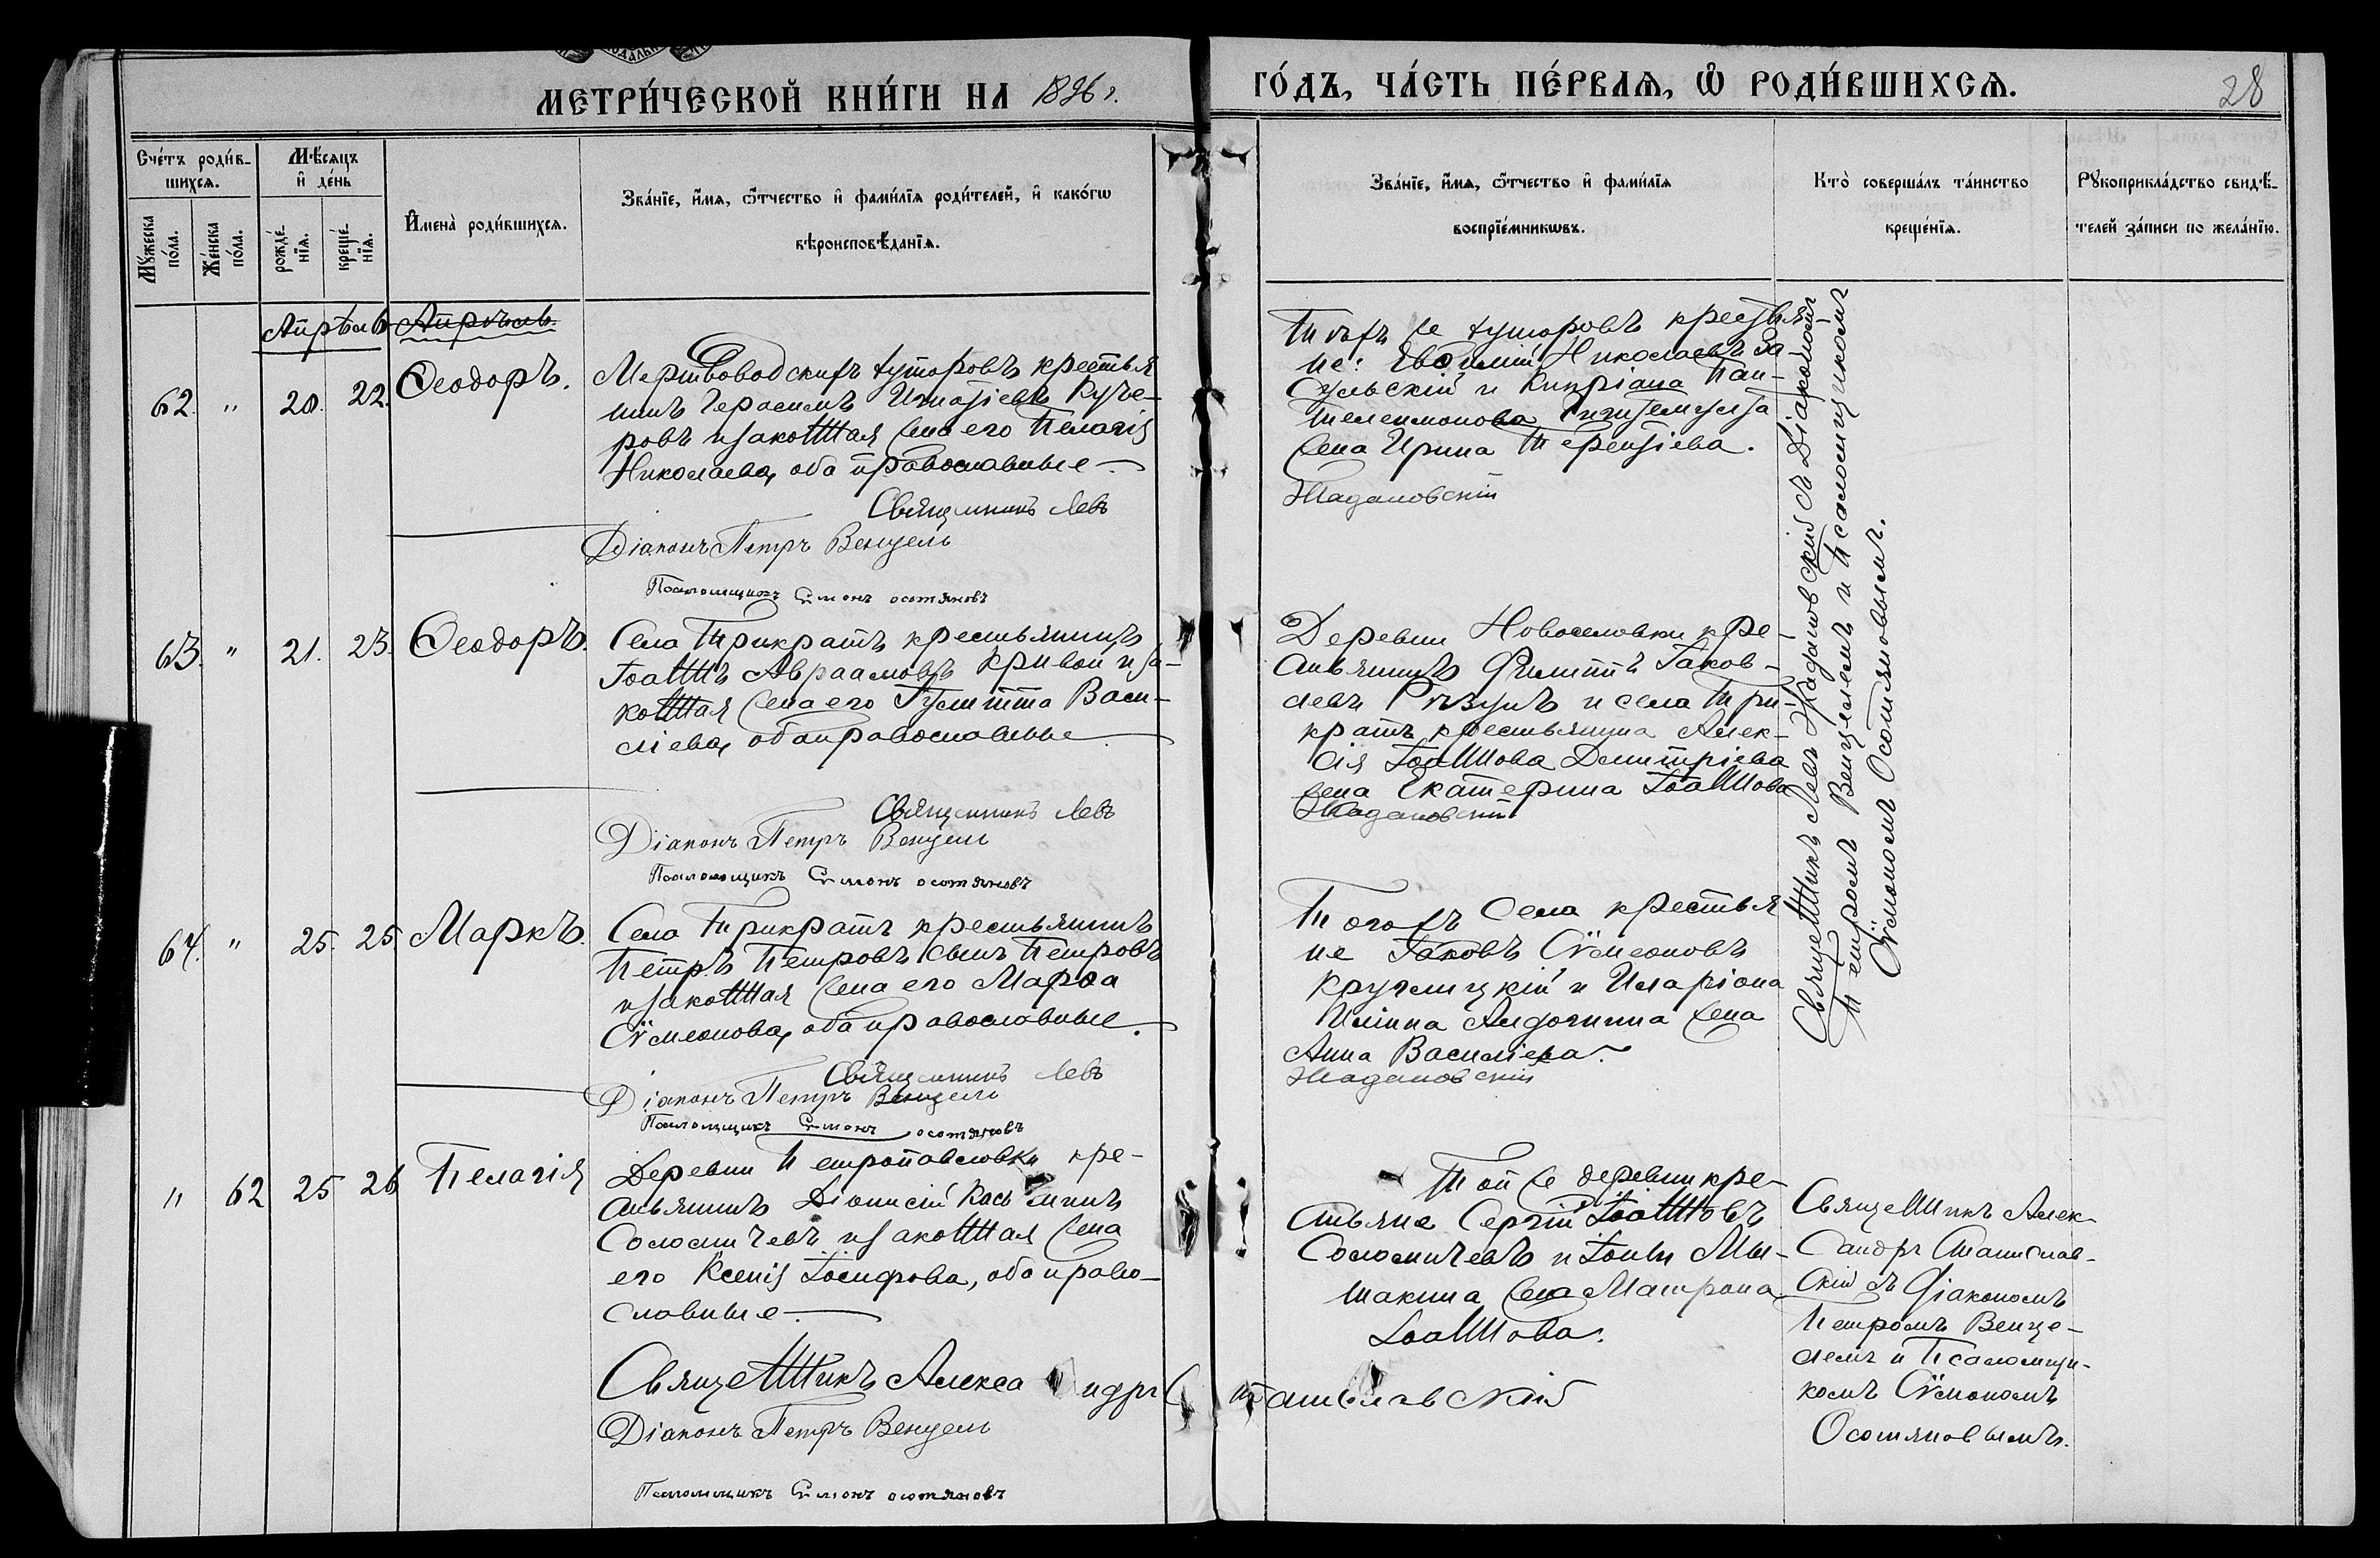 МЕТРИ́ЧЕСКОЙ КНИ́ГИ НА 1896 г.
ГО́ДЪ, ЧА́СТЬ ПЕ́РВАѦ, Ѡ РОДИ́ВШИХСѦ.
28
Сче́тъ роди́в-
шихсѧ.
Мѣ́сѧцъ
и҆ де́нь
Мꙋ́жеска
по́ла.
Же́нска
по́ла.
рожде́-
нїѧ.
креще́-
нїѧ.
И҆мена̀ роди́вшихсѧ.
Зва́нїе, и҆́мѧ, ѻ҆́тчество и҆ фами́лїѧ роди́телей, и҆ како́гѡ
вѣроисповѣ́данїѧ.
Зва́нїе, и҆́мѧ, ѻ҆́тчество и҆ фами́лїѧ
воспрїе́мникѡвъ.
Кто̀ соверша́лъ та́инство
креще́нїѧ.
Рꙋкоприкла́дство свидѣ́-
телей за́писи по жела́нїю.
Апрѣль Апрѣль
62. " 20. 22. Ѳеодоръ.
Мертвоводскихъ хуторовъ крестья
нинъ Герасимъ Игнатіевъ Куче-
ровъ и законная жена его Пелагія
Николаева, оба православные
Священникъ Левъ
Діаконъ Петръ Венцель
Псаломщикъ Симонъ Осотяновъ
Тѣхъ же хуторовъ крестья-
не: Евѳимій Николаевъ За-
сульскій и Кипріана Пан-
телеимонова жена
Ирина Терентіева.
Жадановскій
63. " 21. 23. Ѳеодоръ.
Села Трикратъ крестьянинъ
Іоаннъ Авраамовъ Кривой и за-
конная жена его Іулитта Васи-
ліева, оба православные
Священникъ Левъ
Діаконъ Петръ Венцель
Псаломщикъ Симонъ Осотяновъ
Деревни Новоселовки кре-
стьянинъ Филиппъ Іаков-
левъ Рѣзунъ и села Три-
кратъ крестьянина Алек-
сія Іоаннова Димитріева
жена Екатерина Іоаннова
Жадановскій
Священникъ Левъ Жадановскій съ Діакономъ
Петромъ Венцелемъ и Псаломщикомъ
Сѵмономъ Осотяновымъ.
64. " 25. 25 Маркъ.
Села Трикратъ крестьянинъ
Петръ Петровъ сынъ Петровъ
и законная жена его Марѳа
Сѵмеонова, оба православные.
Священникъ Левъ
Діаконъ Петръ Венцель
Псаломщикъ Симонъ Осотяновъ
Тогожъ села крестья
не Іаковъ Сѵмеоновъ
Круглицкій и Иларіона
жена
Анна Василіева.
Жадановскій
" 62 25 26 Пелагія
Деревни Петропавловки кре-
стьянинъ Діонисій Косьминъ
Соломичевъ и законная жена
его Ксенія Іосифова, оба право-
славные
Священникъ Александръ Станиславскій
Діаконъ Петръ Венцель
Псаломщикъ Симонъ Осотяновъ
Той же деревни кре-
стьяне Сергій Іоанновъ
Соломичевъ и Іоны Мы-
шакина жена Матрона
Іоаннова.
Священникъ Алек-
сандръ Станислав-
скій съ Діакономъ
Петромъ Венце-
лемъ и Псаломщи-
комъ Сѵмономъ
Осотяновымъ.